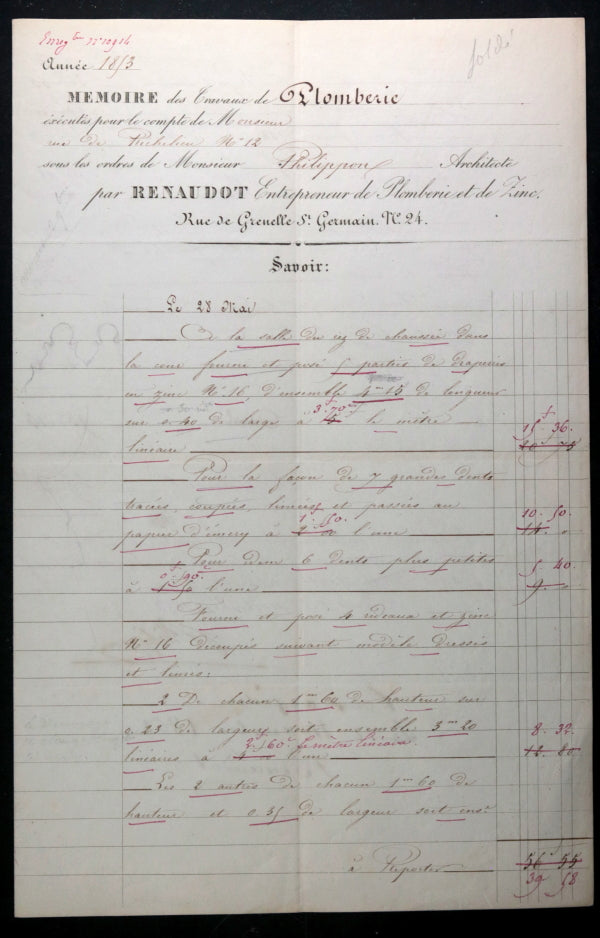 Enreg. N° 10914
soldé
Année 1853
MEMOIRE des Travaux de Plomberie
exécutés pour le compte de Monsieur
rue de Richelieu N° 12
sous les ordres de Monsieur Philippon Architecte
par RENAUDOT Entrepreneur de Plomberie et de Zinc.
Rue de Grenelle St. Germain. N° 24.
Savoir:
Le 28 Mai
A la salle du rez de chaussée dans
la cour fourni et posé 5 parties de draperies
en zinc N° 16, d'ensemble 4m 15 de longueur
sur 0.40 de large à 3.70 5 le mètre
linéaire 15. 36. 20 75
Pour la façon de 7 grandes dents
tracées, coupées, limées et passées au
papier d'émery à 1. 50. 2 00 l'une 10. 50. 14. 0
Pour idem 6 dents plus petites 5. 40.
à 0. 90. 1 50 l'une 9. 0
Fourni et posé 4 rideaux et zinc
N° 16 découpés suivant modèle dressés
et limés:
2 De chacun 1m 60 de hauteur sur
0.23 de largeur soit ensemble 3m 20 8. 32.
linéaires à 2. 60. le mètre linéaire 4 l'un 12. 80
Les 2 autres de chacun 1m 60 de
hauteur et 0.35 de largeur soit ense
à Reporter 56 55
39 58